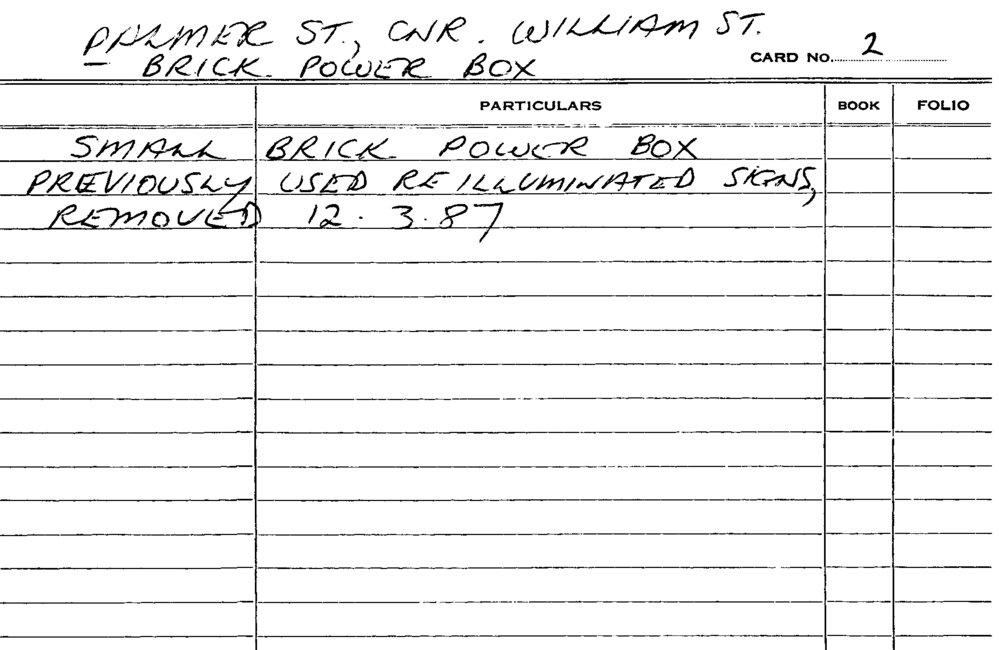 PALMER ST., CNR. WILLIAM ST.
BRICK POWER BOX
CARD No. 2
PARTICULARS BOOK FOLIO
SMALL BRICK POWER BOX
PREVIOUSLY USED RE ILLUMINATED SIGNS,
REMOVED 12.3.87